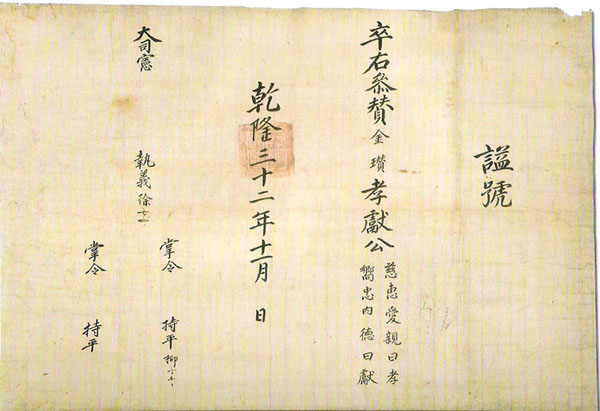 諡號
卒右參贊金瓚孝獻公
慈惠愛親曰孝
嚮忠內德曰獻
乾隆三十二年十一月 日
大司憲
執義徐
掌令 持平柳
掌令 持平